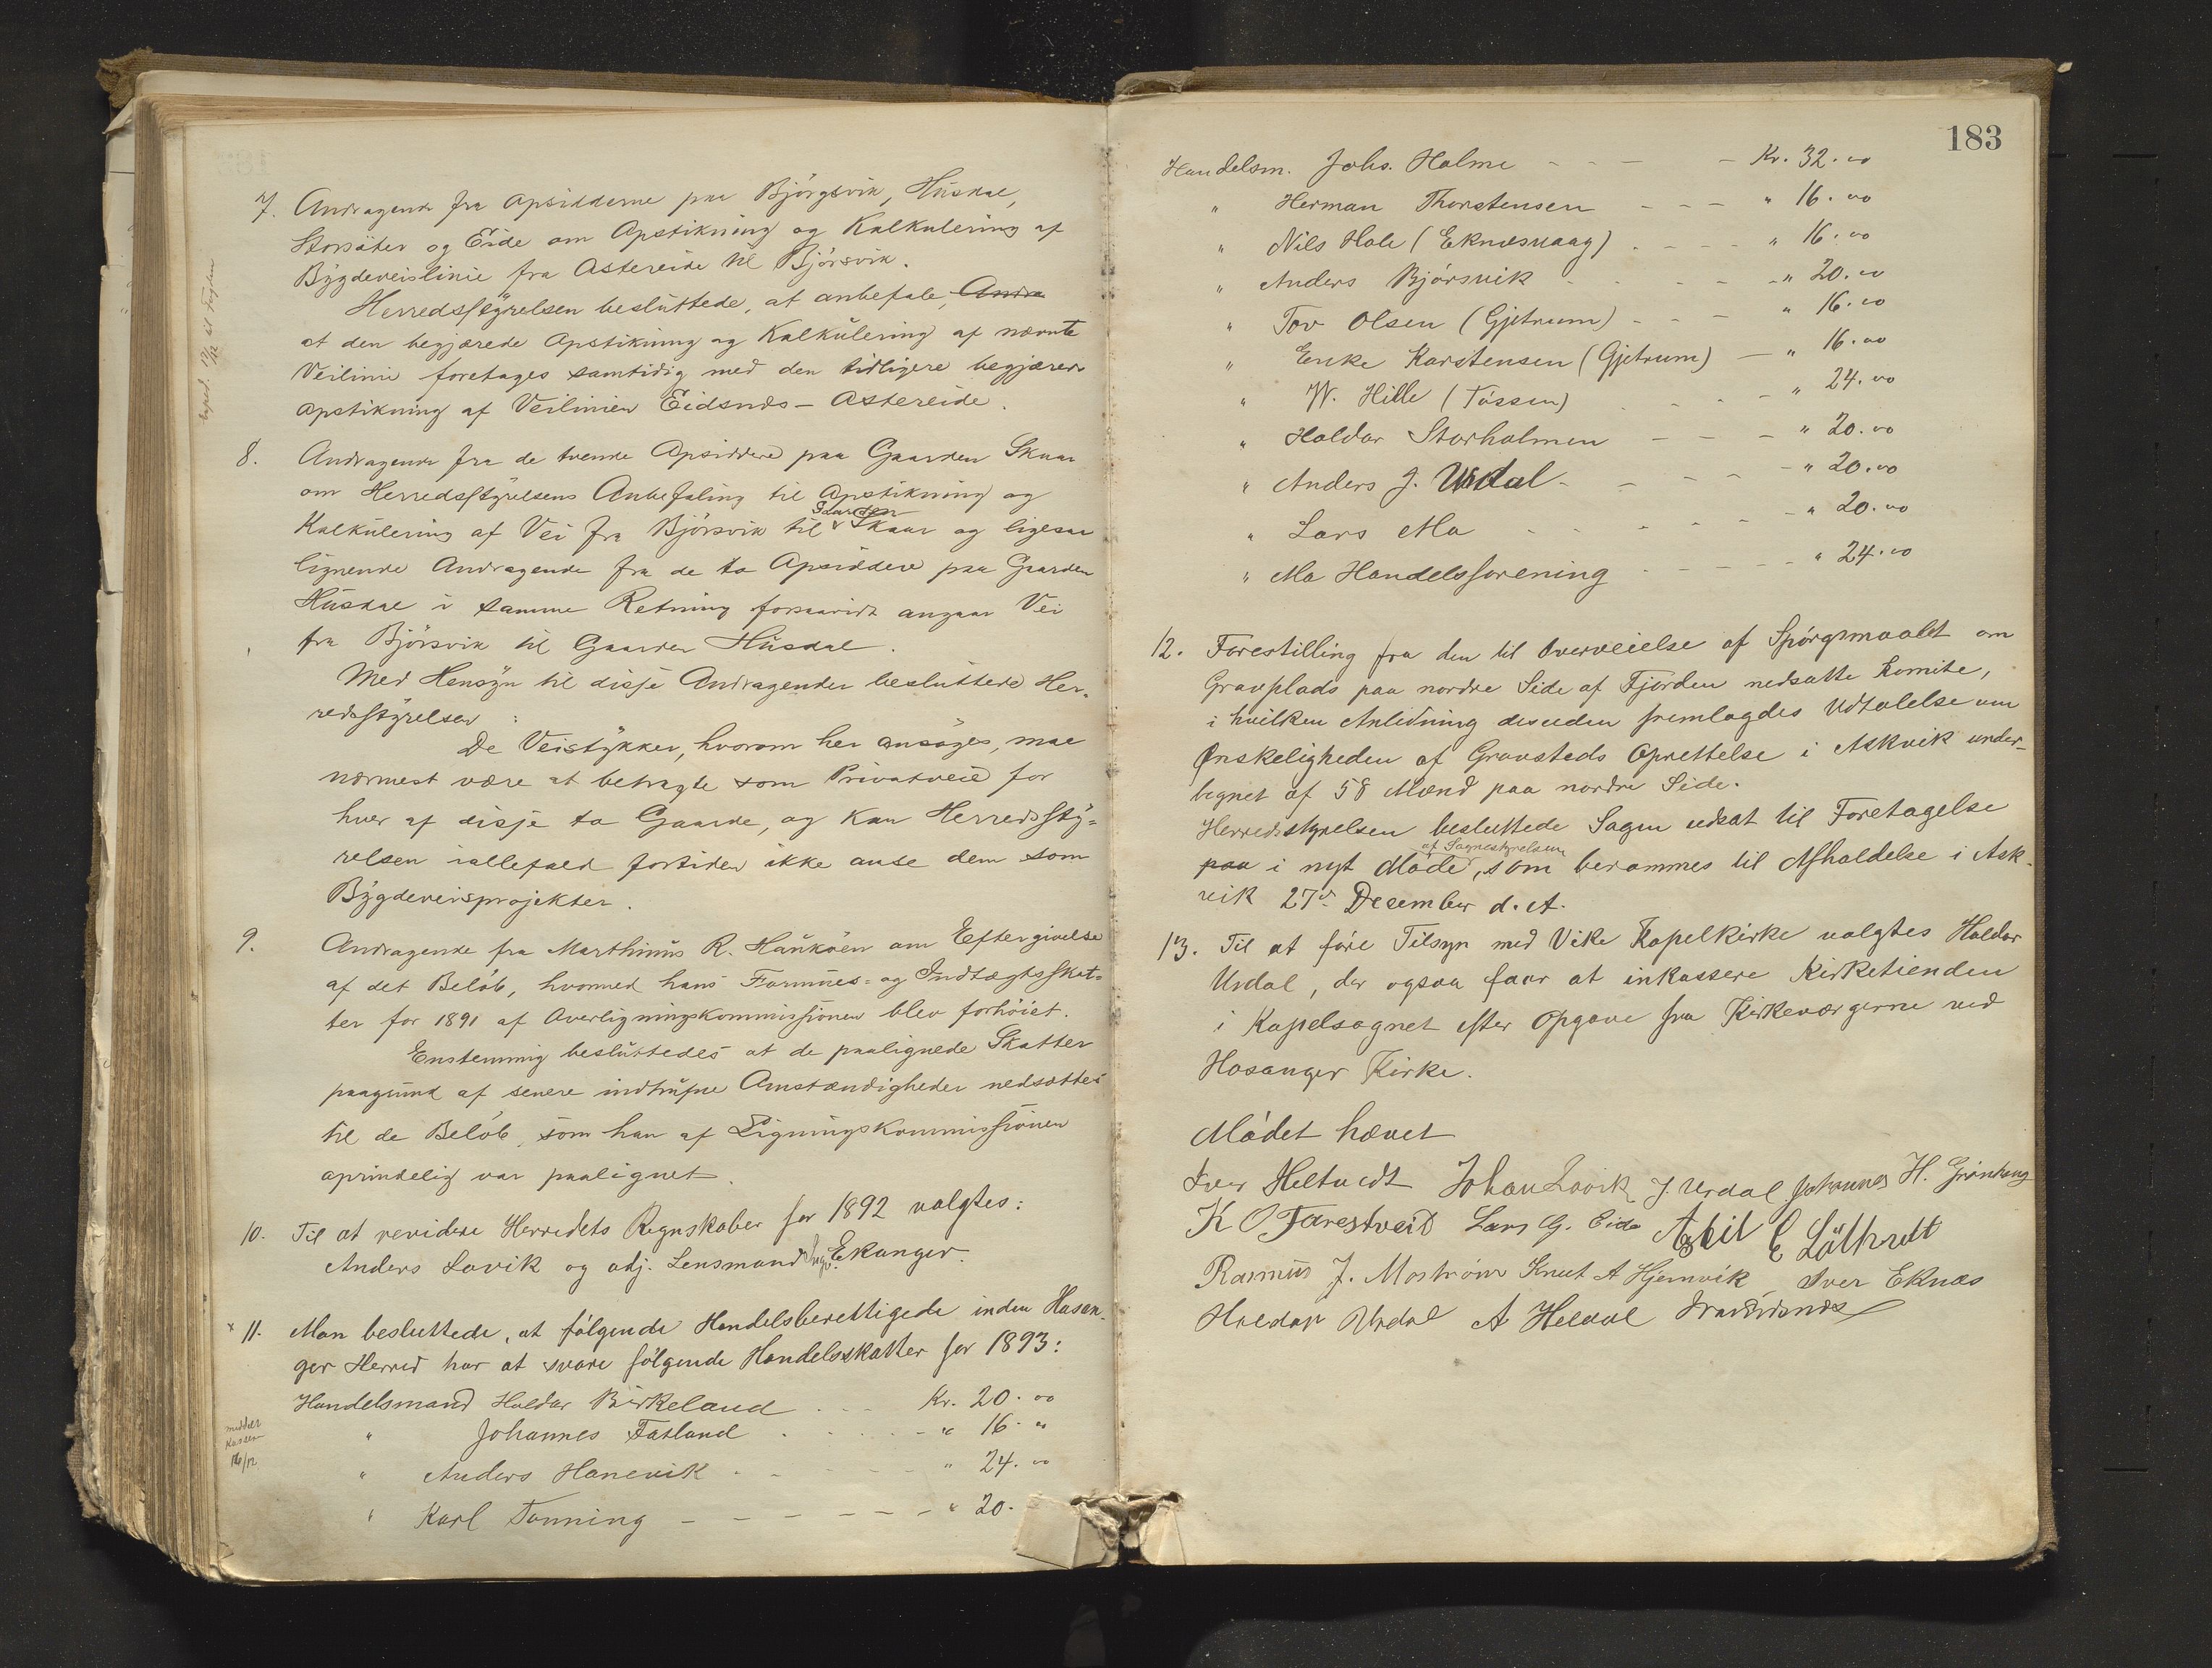 7. Andragende fra Opsidderne paa Bjørgsvik, Husdal,
Storsäter og Eide om Opstikning og Kalkulering af
Bygdeveislinie fra Astereide til Bjørsvik.
Herredsstyrelsen besluttede, at anbefale, Andra
at den begjærede Opstikning og Kalkulering af nævnte
Veilinie foretages samtidig med den tidligere begjærede
Opstikning af Veilinien Eidsnes - Astereide.
8. Andragende fra de tvende Opsiddere paa Gaarden Skaar
om Herredsstyrelsens Anbefaling til Opstikning og
Gaarden
Kalkulering af Vei fra Bjørsvik til Skaar og ligesaa
lignende Andragende fra de to Opsiddere paa Gaarden
Husdal i samme Retning forsaavidt angaar Vei
fra Bjørsvik til Gaarden Husdal.
Med Hensyn til disse Andragender besluttede Her-
redsstyrelsen:
De Veistykker, hvorom her ansøges, maa
nærmest være at betragte som Privatveie for
hver af disse to Gaarde, og kan Herredssty-
relsen iallefald fortiden ikke anse dem som
Bygdeveisprojekter.
9. Andragende fra Marthinus R. Haukøen om Eftergivelse
af det Beløb, hvormed hans Formues- og Indtægtsskat-
ter for 1891 af Overligningskommissionen blev forhøiet.
Enstemmig besluttedes at de paalignede Skatter
paagrund af senere indtrufne Omstændigheder nedsættes
til de Beløb, som han af Ligningskommissionen
oprindelig var paalignet.
10. Til at revidere Herredets Regnskaber for 1892 valgtes:
Anders Lavik og adj. Lensmand Ekanger.
x 11. Man besluttede, at følgende Handelsberettigede inden Hosan-
ger Herred har at svare følgende Handelsskatter for 1893:
Handelsmand Haldor Birkeland - - - Kr. 20.00
" Johannes Fatland - - - - - " 16 "
meddelt
Kassen
16/12
" Anders Hanevik - - - - - " 24.00
" Karl Tonning - - - - - - " 20.
183
Handelsm. Johs. Holme - - - - Kr. 32.00
" Herman Thorstensen - - - " 16.00
" Nils Hole (Eknæsvaag) - - - - " 16.00
" Anders Bjørsvik - - - - - " 20.00
" Tov Olsen (Gjetrum) - - - " 16.00
" Enke Karstensen (Gjetrum) - " 16.00
" W. Hille (Tøssen) - - - - " 24.00
" Haldor Storholmen - - - " 20.00
" Anders J. Urdal - - - - - " 20.00
" Lars Mo - - - - - - " 20.00
" Mo Handelsforening - - - - - " 24.00
12. Forestilling fra den til Overveielse af Spørgsmaalet om
Gravplads paa nordre Side af Fjorden nedsatte Komite,
i hvilken Anledning desuden fremlagdes Udtalelse om
Ønskeligheden af Gravsteds Oprettelse i Askvik under-
tegnet af 58 Mænd paa nordre Side.
Herredsstyrelsen besluttede Sagen udsat til Foretagelse
af Sognestyrelsen
paa i nyt Møde, som berammes til Afholdelse i Ask-
vik 27de December d. A.
13. Til at føre Tilsyn med Vike Kapelkirke valgtes Haldor
Urdal, der ogsaa faar at inkassere Kirketienden
i Kapelsognet efter Opgave fra Kirkeværgerne ved
Hosanger Kirke.
Mødet hævet
Iver Heltvedt Johan Lavik J. Urdal Johannes H. Grønhaug
K O Tarestveit Lars G. Eide Eskil E
Rasmus J. Mostrøm Knut A Hjemvik Iver Eknæs
Haldor Urdal A Heldal